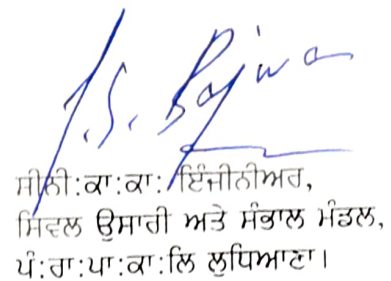 J. S. Bajwa
ਸੀਨੀ:ਕਾ:ਕਾ: ਇੰਜੀਨੀਅਰ,
ਸਿਵਲ ਉਸਾਰੀ ਅਤੇ ਸੰਭਾਲ ਮੰਡਲ,
ਪੰ:ਰਾ:ਪਾ:ਕਾ:ਲਿ ਲੁਧਿਆਣਾ।